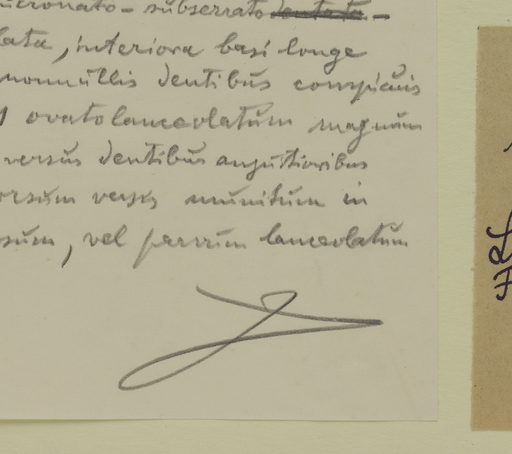 mucronato-subserrato dentata -
lata, interiora basi longe
nonnullis dentibus conspicuis
ovatolanceolatum magnum
versus dentibus angustioribus
orsum versus munitum in
sum, vel parvum lanceolatum